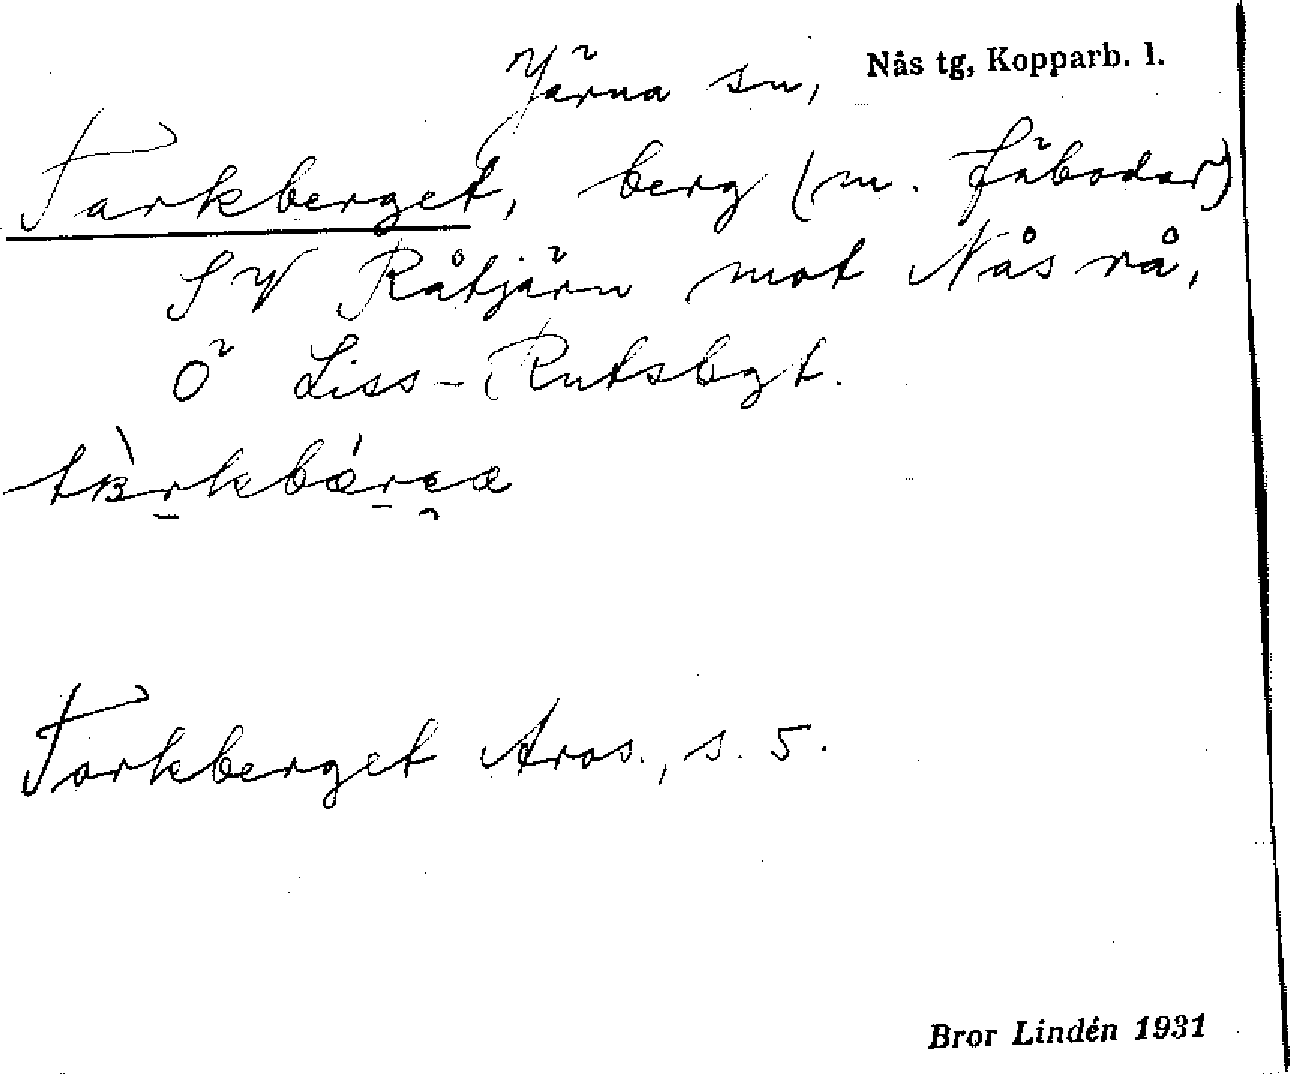 Järna sn, Nås tg, Kopparb. l.
Tarkberget, berg (m. fäbodar)
SV Råtjärn mot Nås rå,
Ö Liss-Rutsbgt.
Torkberget Aros., s. 5.
Bror Lindén 1931